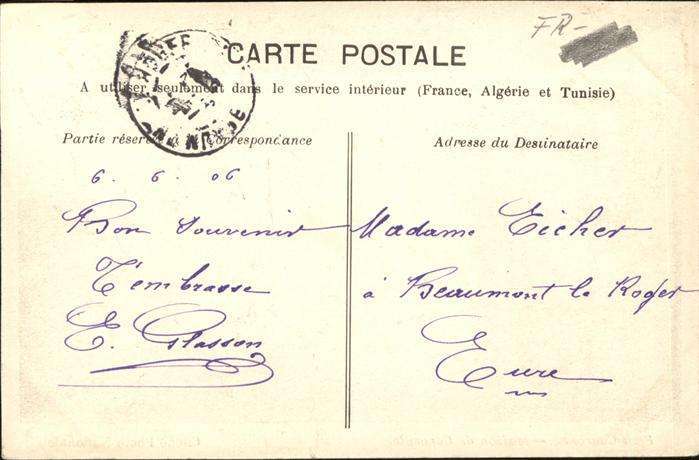 FR-
CARTE POSTALE
A utiliser seulement dans le service intérieur (France, Algérie et Tunisie)
Partie réservée à la Correspondance
6. 6. 06
Bon souvenir
T'embrasse
E. Glasson
Adresse du Destinataire
Madame Eicher
à Beaumont le Roger
Eure